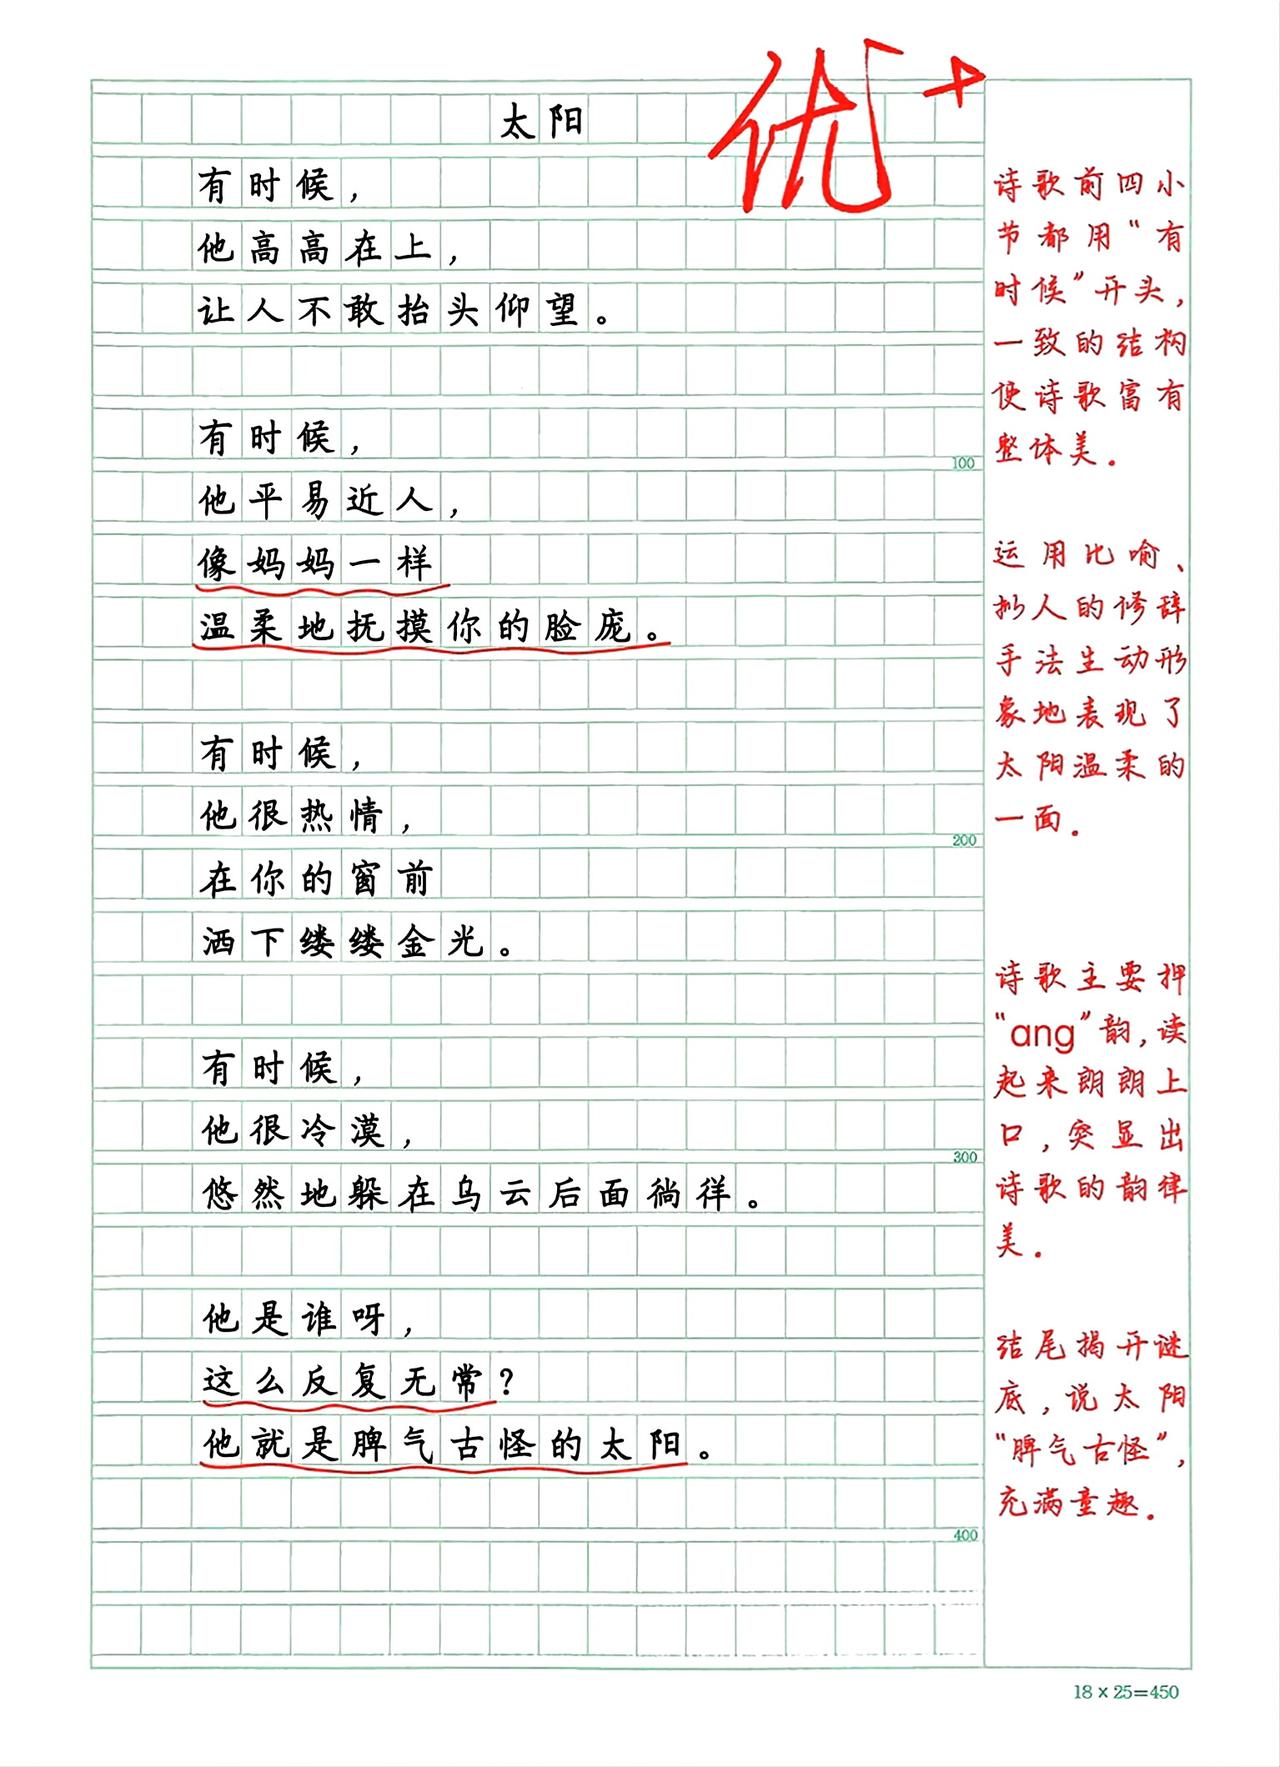 太阳
优+
有时候，
他高高在上，
让人不敢抬头仰望。
有时候，
他平易近人，
像妈妈一样
温柔地抚摸你的脸庞。
有时候，
他很热情，
在你的窗前
洒下缕缕金光。
有时候，
他很冷漠，
悠然地躲在乌云后面徜徉。
他是谁呀，
这么反复无常？
他就是脾气古怪的太阳。
诗歌前四小
节都用“有
时候”开头，
一致的结构
使诗歌富有
整体美.
运用比喻、
拟人的修辞
手法生动形
象地表现了
太阳温柔的
一面.
诗歌主要押
“ang”韵,读
起来朗朗上
口,突显出
诗歌的韵律
美.
结尾揭开谜
底,说太阳
“脾气古怪”,
充满童趣.
100
200
300
400
18×25=450